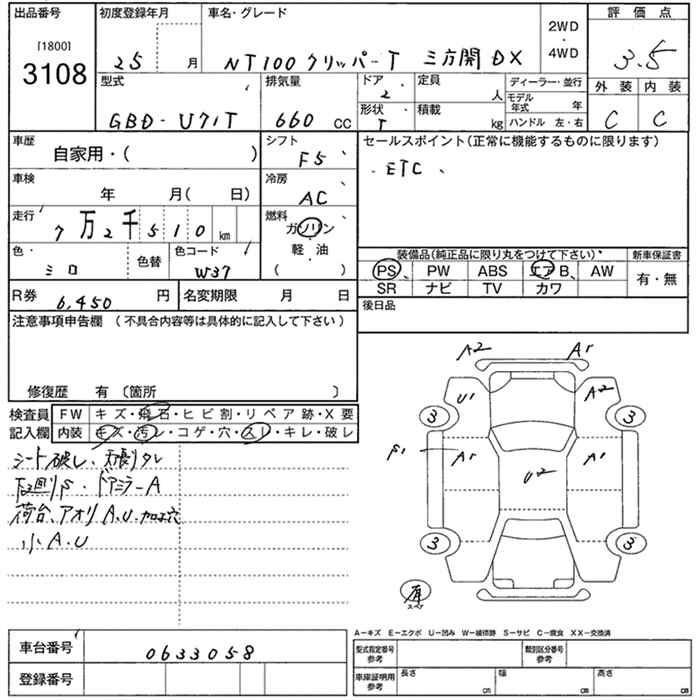 出品番号
[1800]
3108
初度登録年月
25 月
車名・グレード
NT100 クリッパーT 三方開 DX
2WD
・
4WD
評価点
3.5
外装 内装
C C
型式
GBD-U71T
排気量
660 CC
ドア
2
定員
人
形状
T
積載
kg
ディーラー・並行
モデル年式 年
ハンドル 左・右
車歴
自家用・( )
シフト
F5
セールスポイント(正常に機能するものに限ります)
ETC
車検
年 月( 日)
冷房
AC
走行
7万2千510km
燃料
ガソリン
軽・油
( )
色・
シロ
色替
色コード
W37
装備品(純正品に限り丸をつけて下さい)
新車保証書
PS PW ABS エアB、 AW
有・無
SR ナビ TV カワ
R券
6,450 円
名変期限 月 日
後日品
注意事項申告欄 (不具合内容等は具体的に記入して下さい)
修復歴 有 〔箇所 〕
検査員 FW キズ・飛石・ヒビ割・リペア跡・X要
記入欄 内装 キズ・汚レ・コゲ・穴・スレ・キレ・破レ
シート破レ、天張タレ
下回りS・ドアミラーA
荷台、アオリA.U.加工穴
小A.U
A2 A1
U1 A2
3 3
S1 A1 A1
U2
3 3
有
スペア
A-キズ E-エクボ U-凹み W-補修跡 S-サビ C-腐食 XX-交換済
車台番号
0633058
登録番号
型式指定番号
参考
類別区分番号
参考
車庫証明用
参考
長さ cm
幅 cm
高さ cm